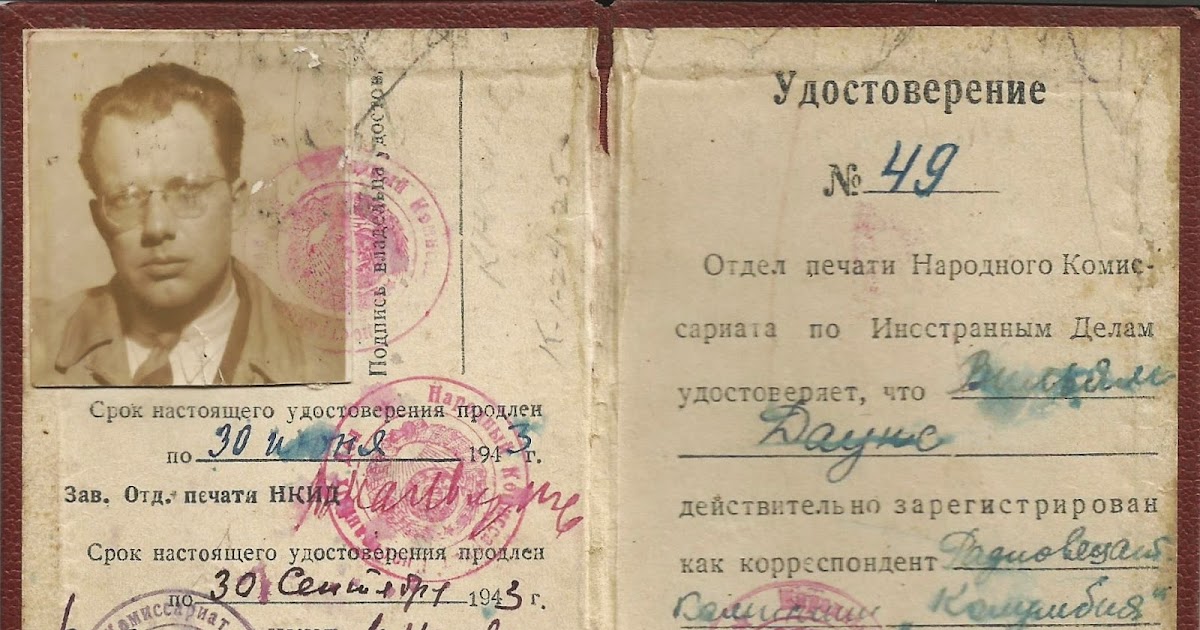 Подпись владельца удостов.
Срок настоящего удостоверения продлен
по 30 июня 1943 г.
Зав. Отд. печати НКИД
Срок настоящего удостоверения продлен
по 30 Сентября 1943 г.
Комиссариат
Удостоверение
№ 49
Отдел печати Народного Комис-
сариата по Иностранным Делам
удостоверяет, что Вильям
Даунс
действительно зарегистрирован
как корреспондент Радиовещат
Компании „Колумбия"